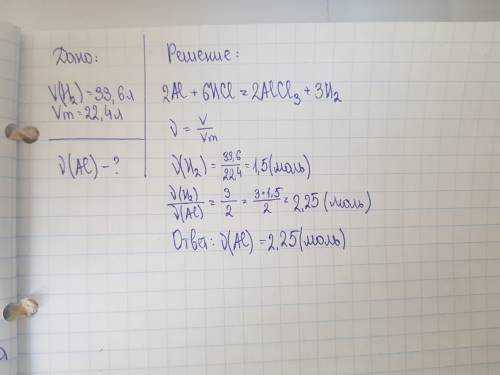 Дано:
V(H₂)=33,6л
Vm=22,4л
ν(Al)-?
Решение:
2Al+6HCl=2AlCl₃+3H₂
ν=V/Vm
ν(H₂)=33,6/22,4=1,5(моль)
ν(H₂)/ν(Al)=3/2=3*1,5/2=2,25(моль)
Ответ: ν(Al)=2,25(моль)